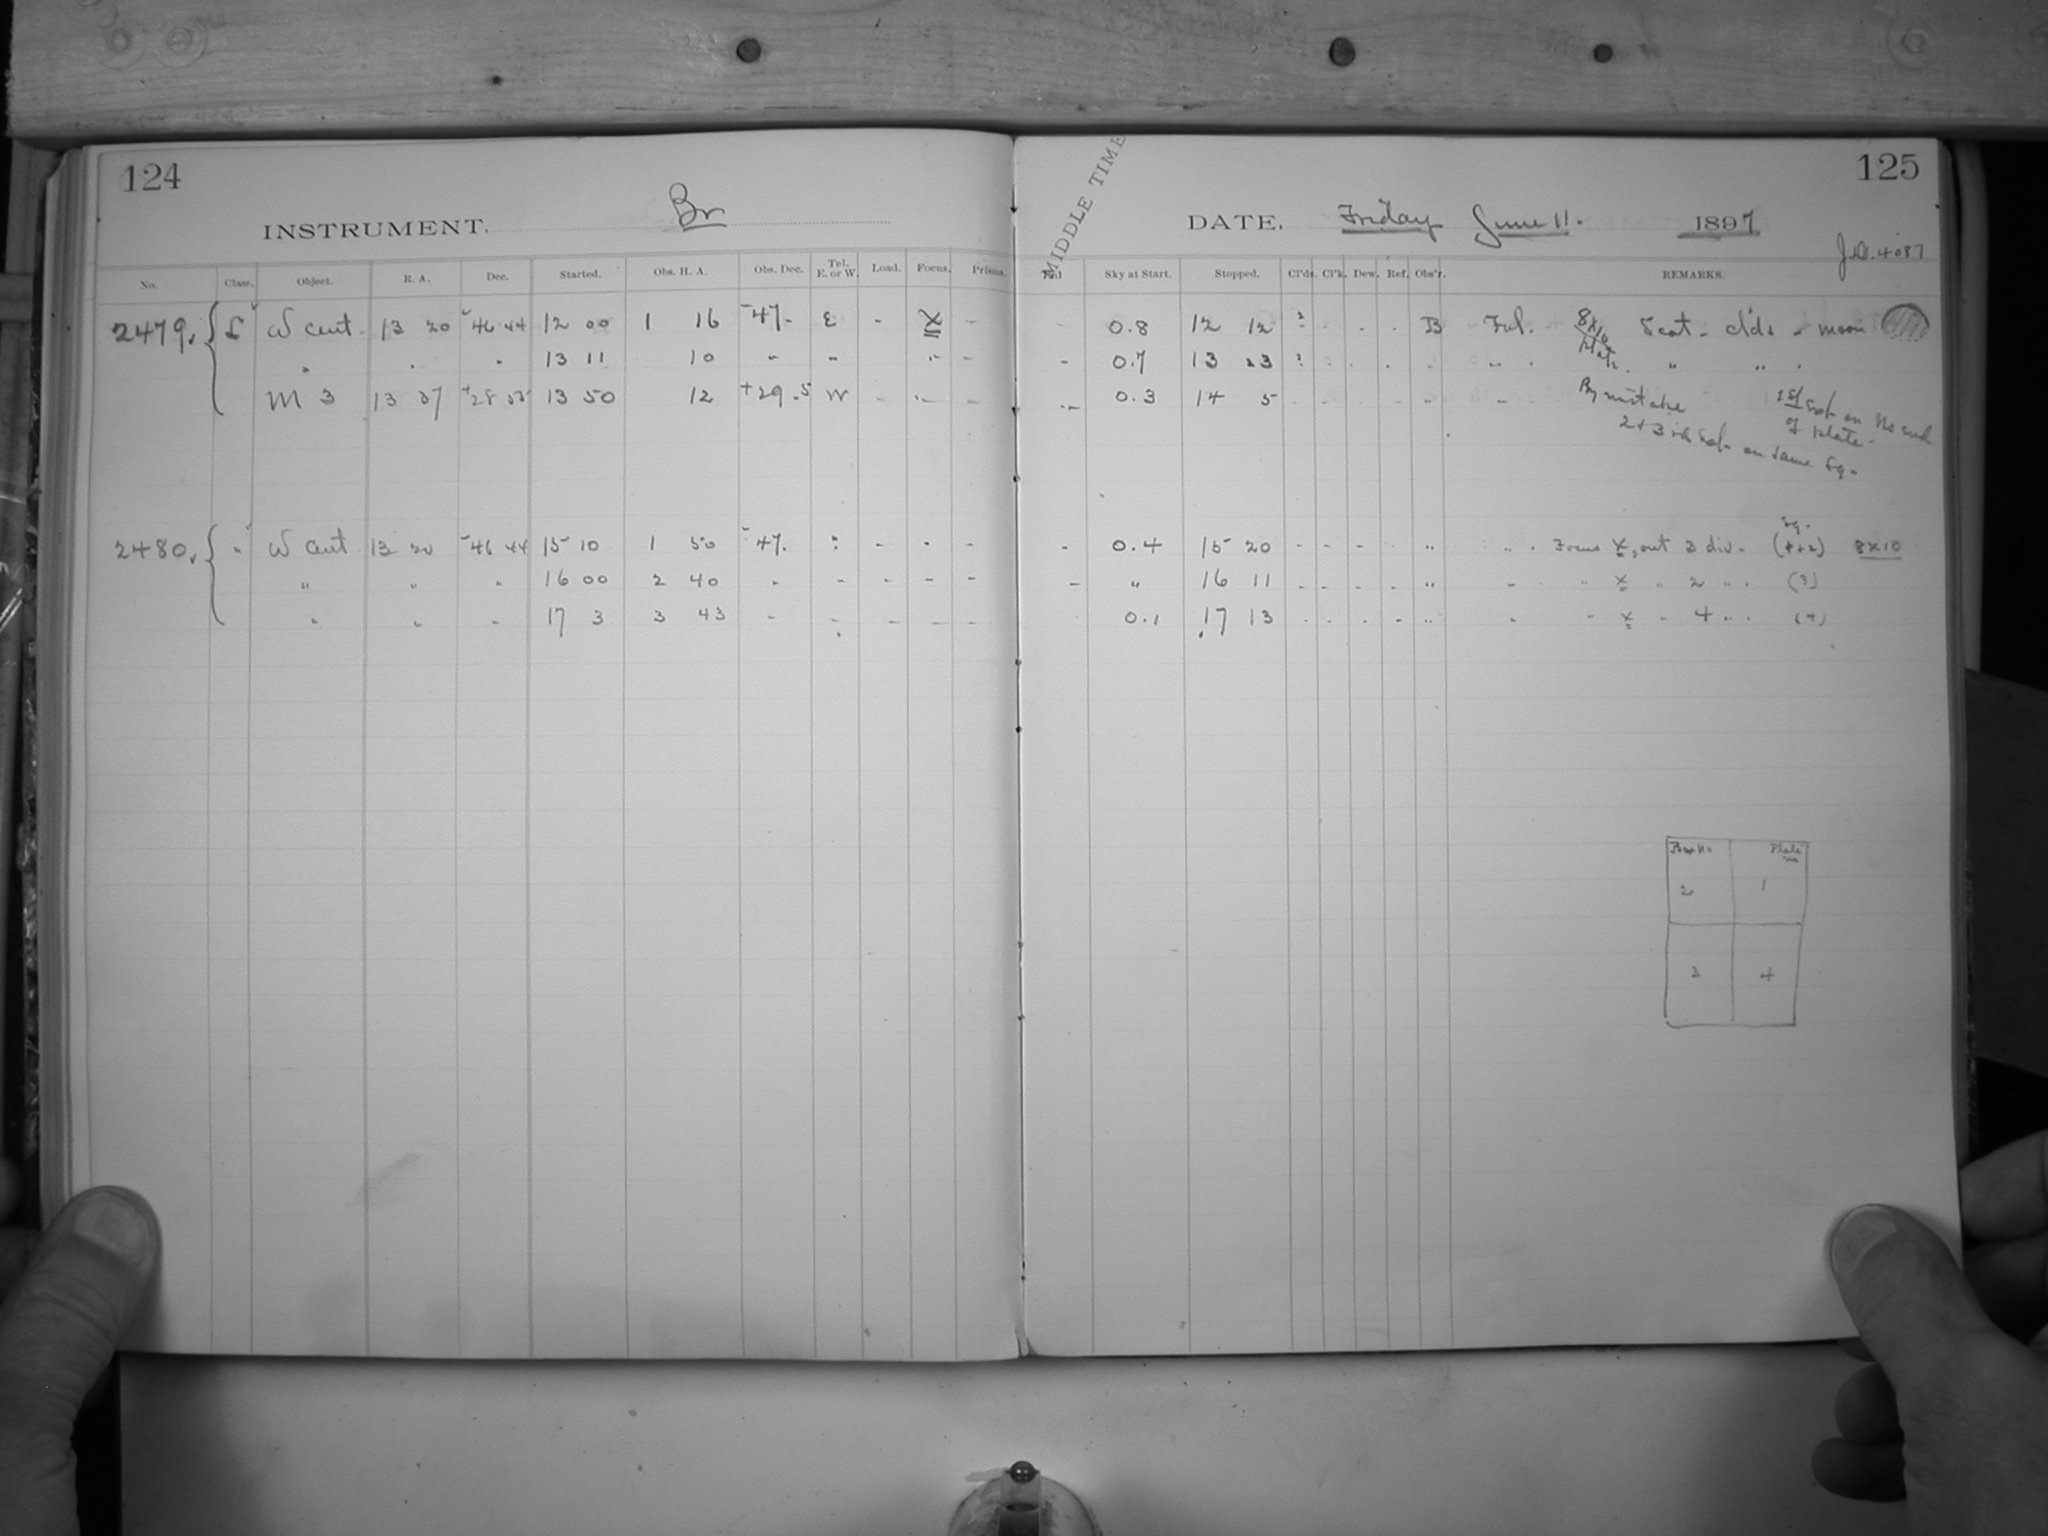 124
INSTRUMENT. Br
No. Class. Object. R. A. Dec. Started. Obs. H. A. Obs. Dec. Tel. E. or W. Load. Focus. Prisms.
2479. L ω Cent. 13 20 -46 44 12 00 1 16 -47. E - X -
" " " 13 11 10 " " " -
M 3 13 37 +28 53 13 50 12 +29.5 W - " -
2480. " ω Cent 13 20 -46 44 15 10 1 50 -47. " - " -
" " " 16 00 2 40 " - - - -
" " " 17 3 3 43 - - - - -
125
MIDDLE TIME
DATE, Friday June 11. 1897
J.D. 4087
Sky at Start. Stopped. Cl'ds. Cl'k. Dew. Ref. Obs'r. REMARKS.
- 0.8 12 12 2 . . . B 8x10 Plate Scat. cl'ds - moon
- 0.7 13 23 2 . . . " " " "
- 0.3 14 5 - - - - " " By mistake 1st exp. on No end
of plate.
2 & 3rd exp. on same sq.
sq.
- 0.4 15 20 - - - - " " Focus X, out 3 div. (1+2) 8x10
- " 16 11 - - - - " " " X " 2 " (3)
0.1 17 13 - - - - " " " X " 4 " (4)
Plate
2 1
3 4